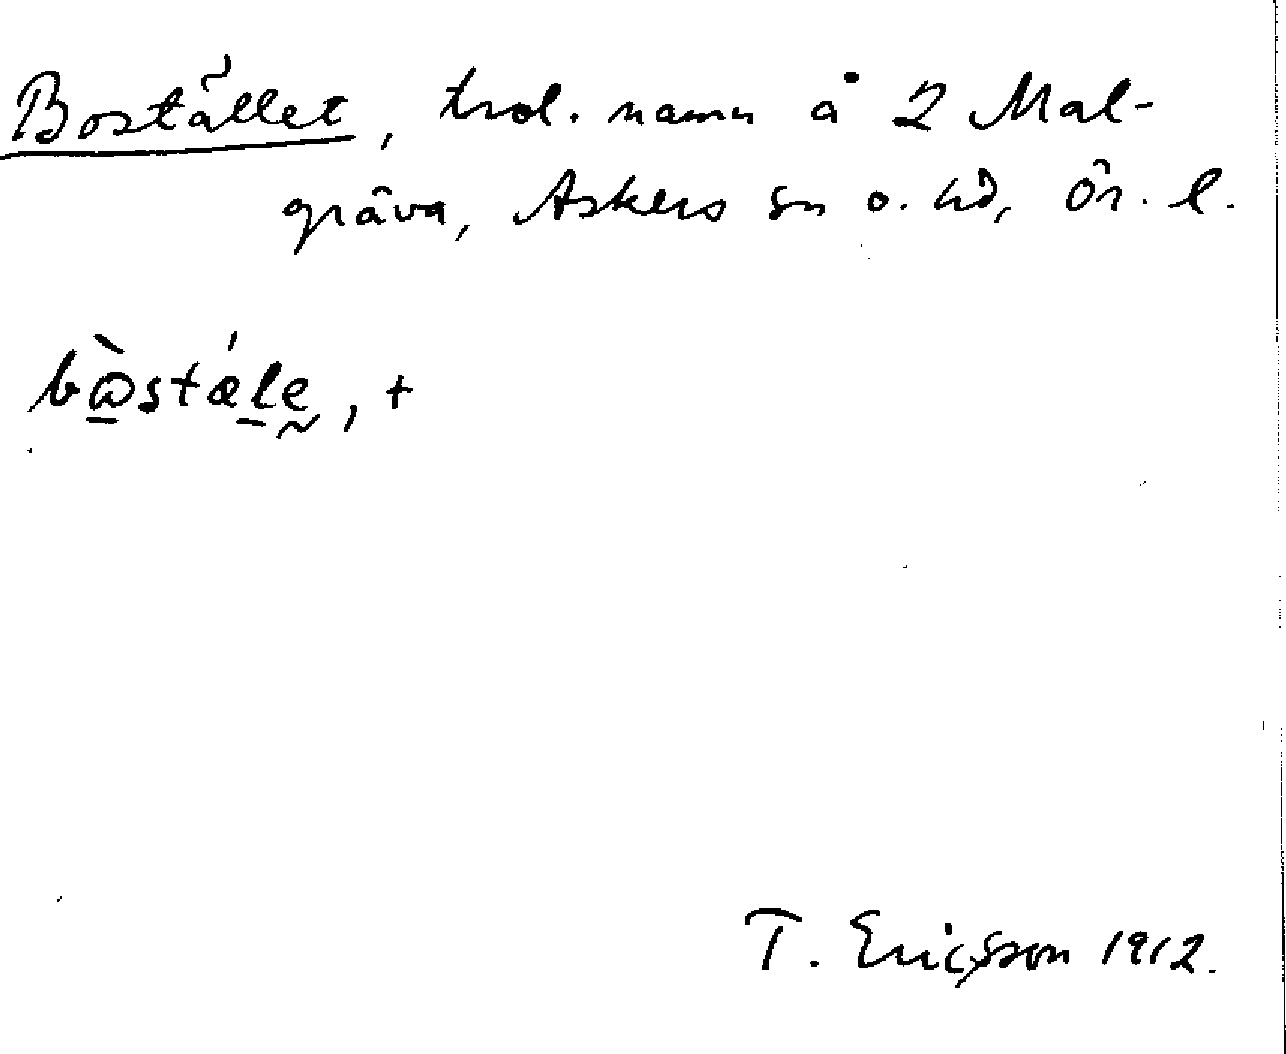 Bostället, trol. namn å 2 Mal-
gräva, Askers sn o. hd, Ör. l.
bòstǽle, +
T. Ericsson 1912.